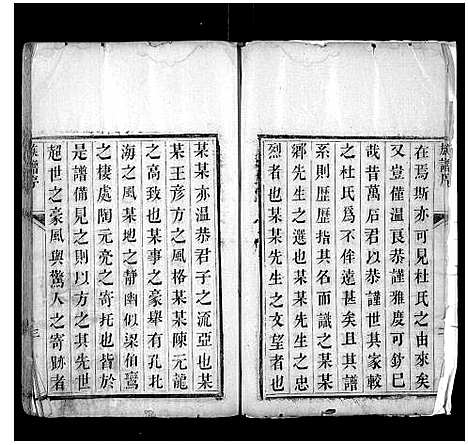 族譜序
在焉斯亦可見杜氏之由來矣
又豈僅溫良恭謹雅度可鈔已
哉昔萬石君以恭謹世其家較
之杜氏為不侔遠甚矣且其譜
系則歷歷指其名而識之某某
鄉先生之選也某某先生之忠
烈者也某某先生之文望者也
某某亦溫恭君子之流亞也某
某王彥方之風格某某陳元龍
之高致也某事之豪舉有孔北
海之風某地之靜幽似梁伯鸞
之棲處陶元亮之寄托也皆於
是譜備見之則以方之其先世
超世之豪風與驚人之寄跡者
族譜序
三